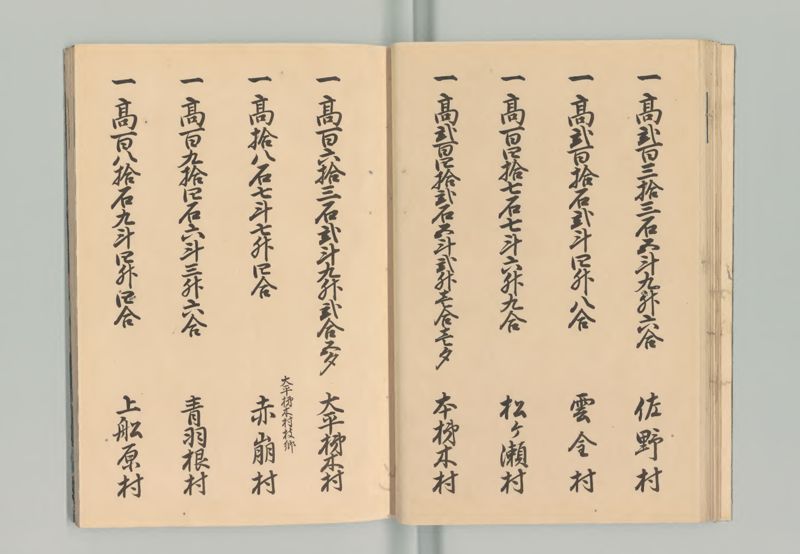 一高弐百三拾三石五斗九升六合 佐野村
一高弐百拾石弐斗四升八合 雲金村
一高百四拾七石七斗六升九合 松ヶ瀬村
一高弐百四拾弐石五斗弐升壱合壱夕 本柿木村
一高百六拾三石弐斗九升弐合五夕 大平柿木村
大平柿木村枝郷
一高拾八石七斗七升四合 赤崩村
一高百九拾四石六斗三升六合 青羽根村
一高百八拾石九斗四升四合 上船原村